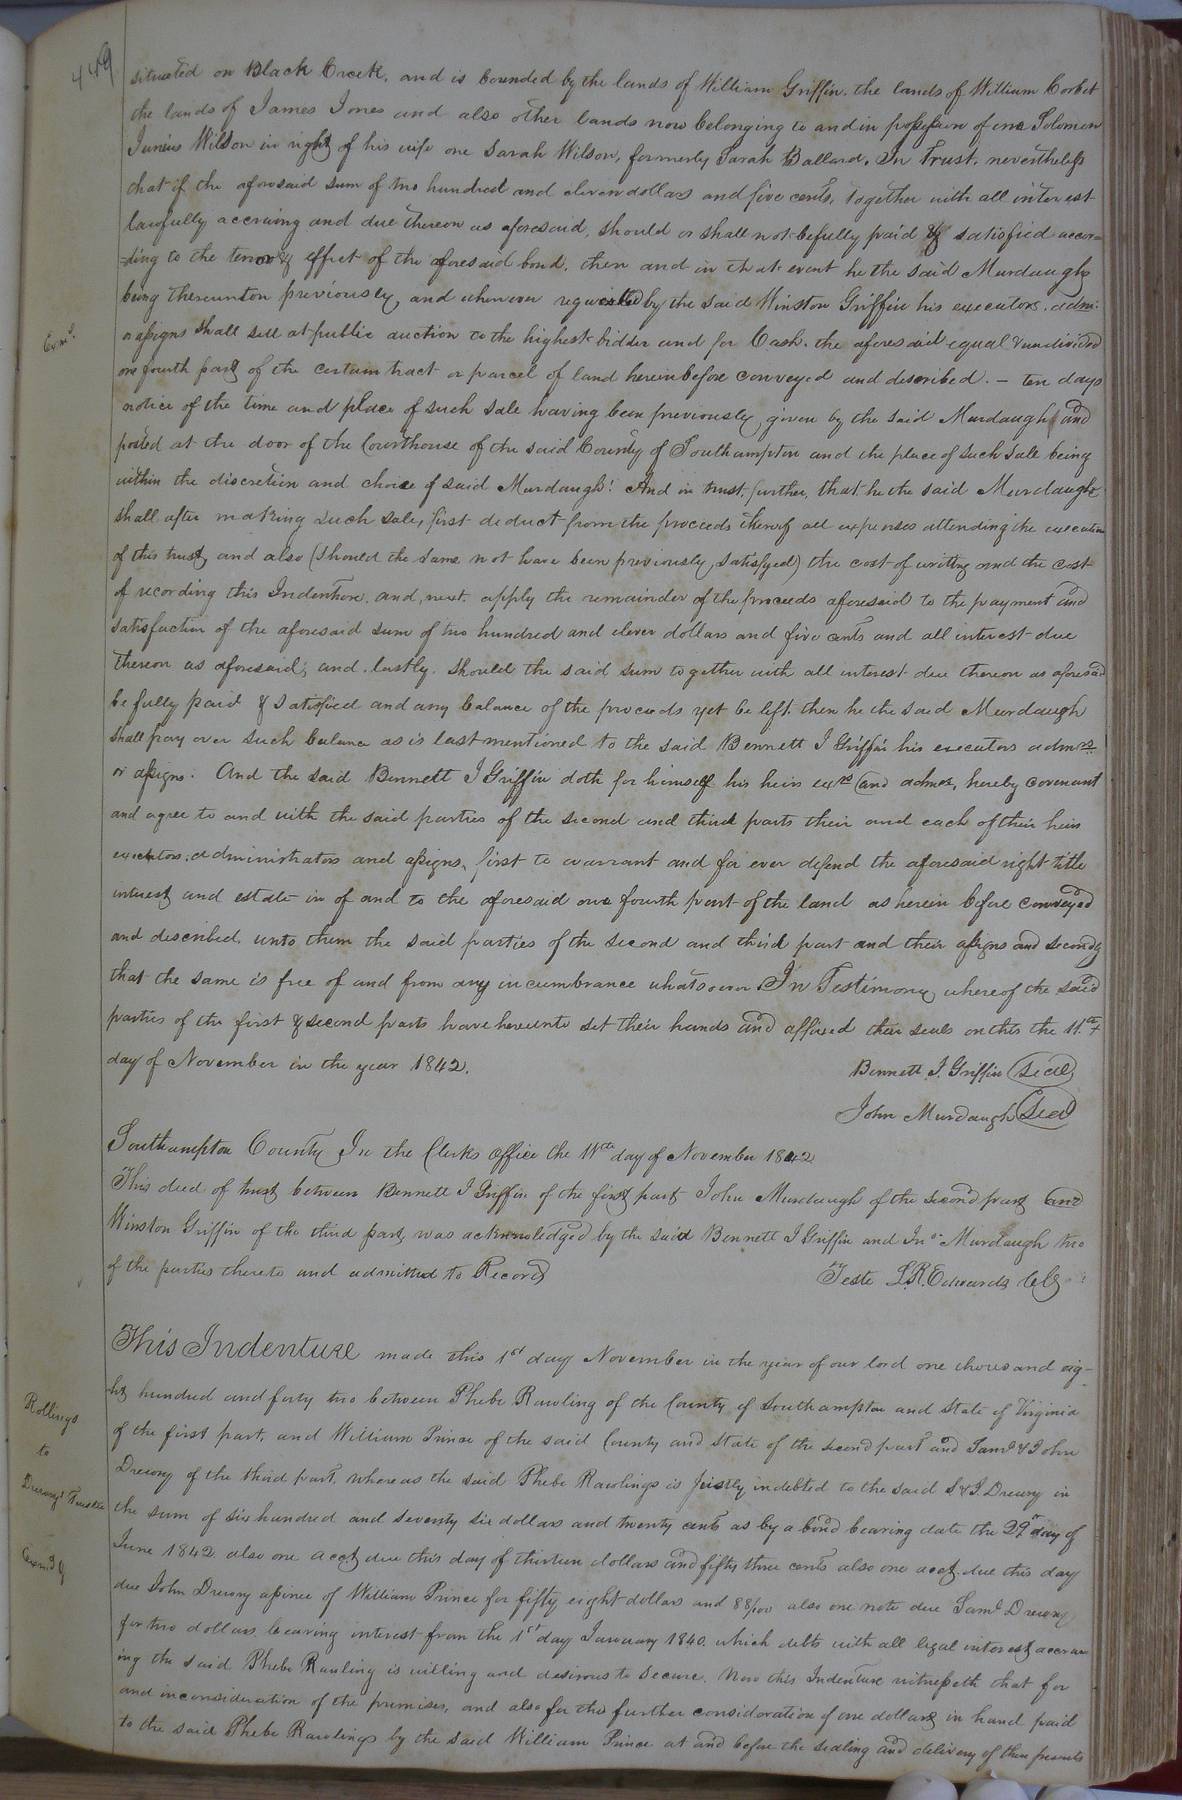 449
situated on Black Creek, and is bounded by the lands of William Griffin, the lands of William Corbet
the lands of James Jones and also other lands now belonging to and in possession of one Solomon
Junius Wilson in right of his wife one Sarah Wilson, formerly Sarah Ballard, In Trust, nevertheless
that if the aforesaid sum of two hundred and eleven dollars and five cents, together with all interest
lawfully accruing and due thereon as aforesaid, should or shall not be fully paid & satisfied accor=
=ding to the tenor & effect of the aforesaid bond, then and in that event he the said Murdaugh
being thereunton previously, and whenever requested by the said Winston Griffin his executors, adm:
or assigns shall sell at public auction to the highest bidder and for Cash, the aforesaid equal & undivided
one fourth part of the certain tract or parcel of land herein before conveyed and described. — ten days
notice of the time and place of such sale having been previously given by the said Murdaugh and
posted at the door of the Courthouse of the said County of Southampton and the place of such sale being
within the discretion and choice of said Murdaugh! And in trust further, that he the said Murdaugh
shall after making such sale, first deduct from the proceeds thereof all expenses attending the execution
of this trust, and also (should the same not have been previously satisfyed) the cost of writing and the cost
of recording this Indenture, and, next, apply the remainder of the proceeds aforesaid to the payment and
satisfaction of the aforesaid sum of two hundred and eleven dollars and five cents and all interest due
thereon as aforesaid; and lastly, should the said sum together with all interest due thereon as aforesaid
be fully paid & satisfied and any balance of the proceeds yet be left, then he the said Murdaugh
shall pay over such balance as is last mentioned to the said Bennett J Griffin his executors admrs
or assigns. And the said Bennett J Griffin doth for himself his heirs exrs and admrs, hereby covenant
and agree to and with the said parties of the second and third parts their and each of their heirs
executors, administrators and assigns, first to warrant and for ever defend the aforesaid right title
interest and estate in of and to the aforesaid one fourth part of the land as herein before conveyed
and described, unto them the said parties of the second and third part and their assigns and secondly
that the same is free of and from any incumbrance whatsoever In Testimony whereof the said
parties of the first & second parts have hereunto set their hands and affixed their seals on this the 11th
day of November in the year 1842.
Bennett J. Griffin (seal)
John Murdaugh (Seal)
Southampton County In the Clerks Office the 11th day of November 1842
This deed of trust between Bennett J Griffin of the first part John Murdaugh of the second part and
Winston Griffin of the third part, was acknowledged by the said Bennett J Griffin and Jno. Murdaugh two
of the parties thereto and admitted to Record
Teste L.R. Edwards Clk
This Indenture made this 1st day November in the year of our lord one thousand eig-
ht hundred and forty two between Phebe Rawling of the County of Southampton and State of Virginia
of the first part, and William Prince of the said County and state of the second part and Saml & John
Rollings
to
Drewry of the third part, whereas the said Phebe Rawlings is justly indebted to the said S & J. Drewry in
Drewrys Trustee
the sum of six hundred and seventy six dollars and twenty cents as by a bond bearing date the 29th day of
June 1842 also one acct due this day of thirteen dollars and fifty three cents also one acct due this day
due John Drewry assinee of William Prince for fifty eight dollars and 88/100 also one note due Saml Drewry
for two dollars bearing interest from the 1st day January 1840, which debts with all legal interest accru
ing the said Phebe Rawling is willing and desirous to secure. Now this Indenture witnesseth that for
and inconsideration of the premises, and also for the further consideration of one dollar in hand paid
to the said Phebe Rawlings by the said William Prince at and before the sealing and delivery of these presents